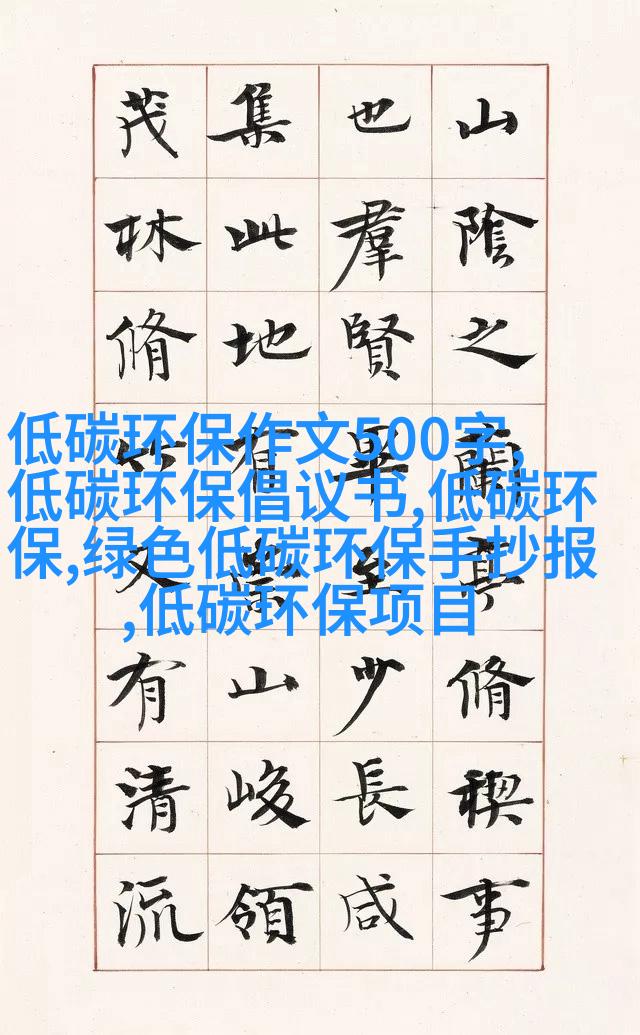 山陰之蘭亭脩禊事
也羣賢畢至少長咸
集此地有崇山峻領
茂林脩竹又有清流
低碳环保作文500字,
低碳环保倡议书,低碳环
保,绿色低碳环保手抄报
,低碳环保项目